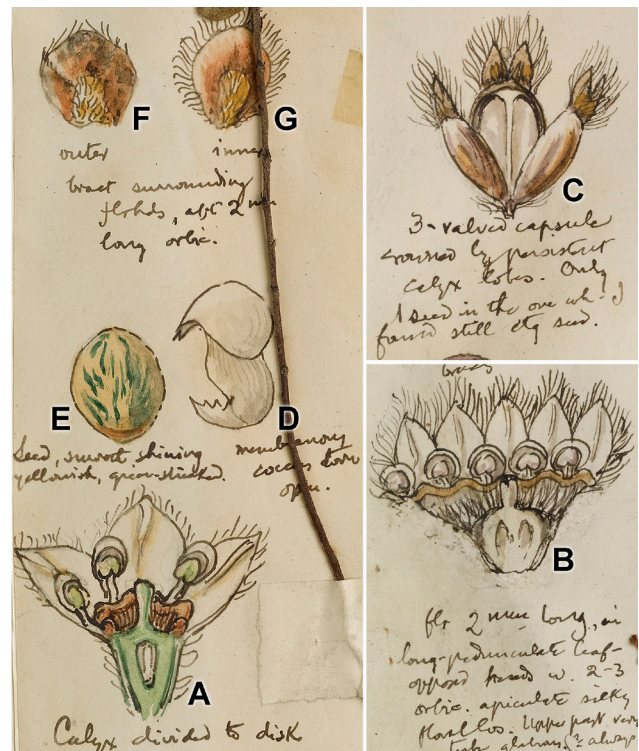 F
G
outer
inner
bract surrounding
florets, abt 2 mm
long orbic.
E
D
Seed, smooth shining
yellowish, green-streaked.
membranous
coccus torn
open.
A
Calyx divided to disk
C
3-valved capsule
crowned by persistent
calyx lobes. Only
1 seed in the one wh. I
found still ctg seed.
bracts
B
fls 2 mm long, in
long-pedunculate leaf-
opposed heads w. 2-3
orbic. apiculate silky
Upper part very
always